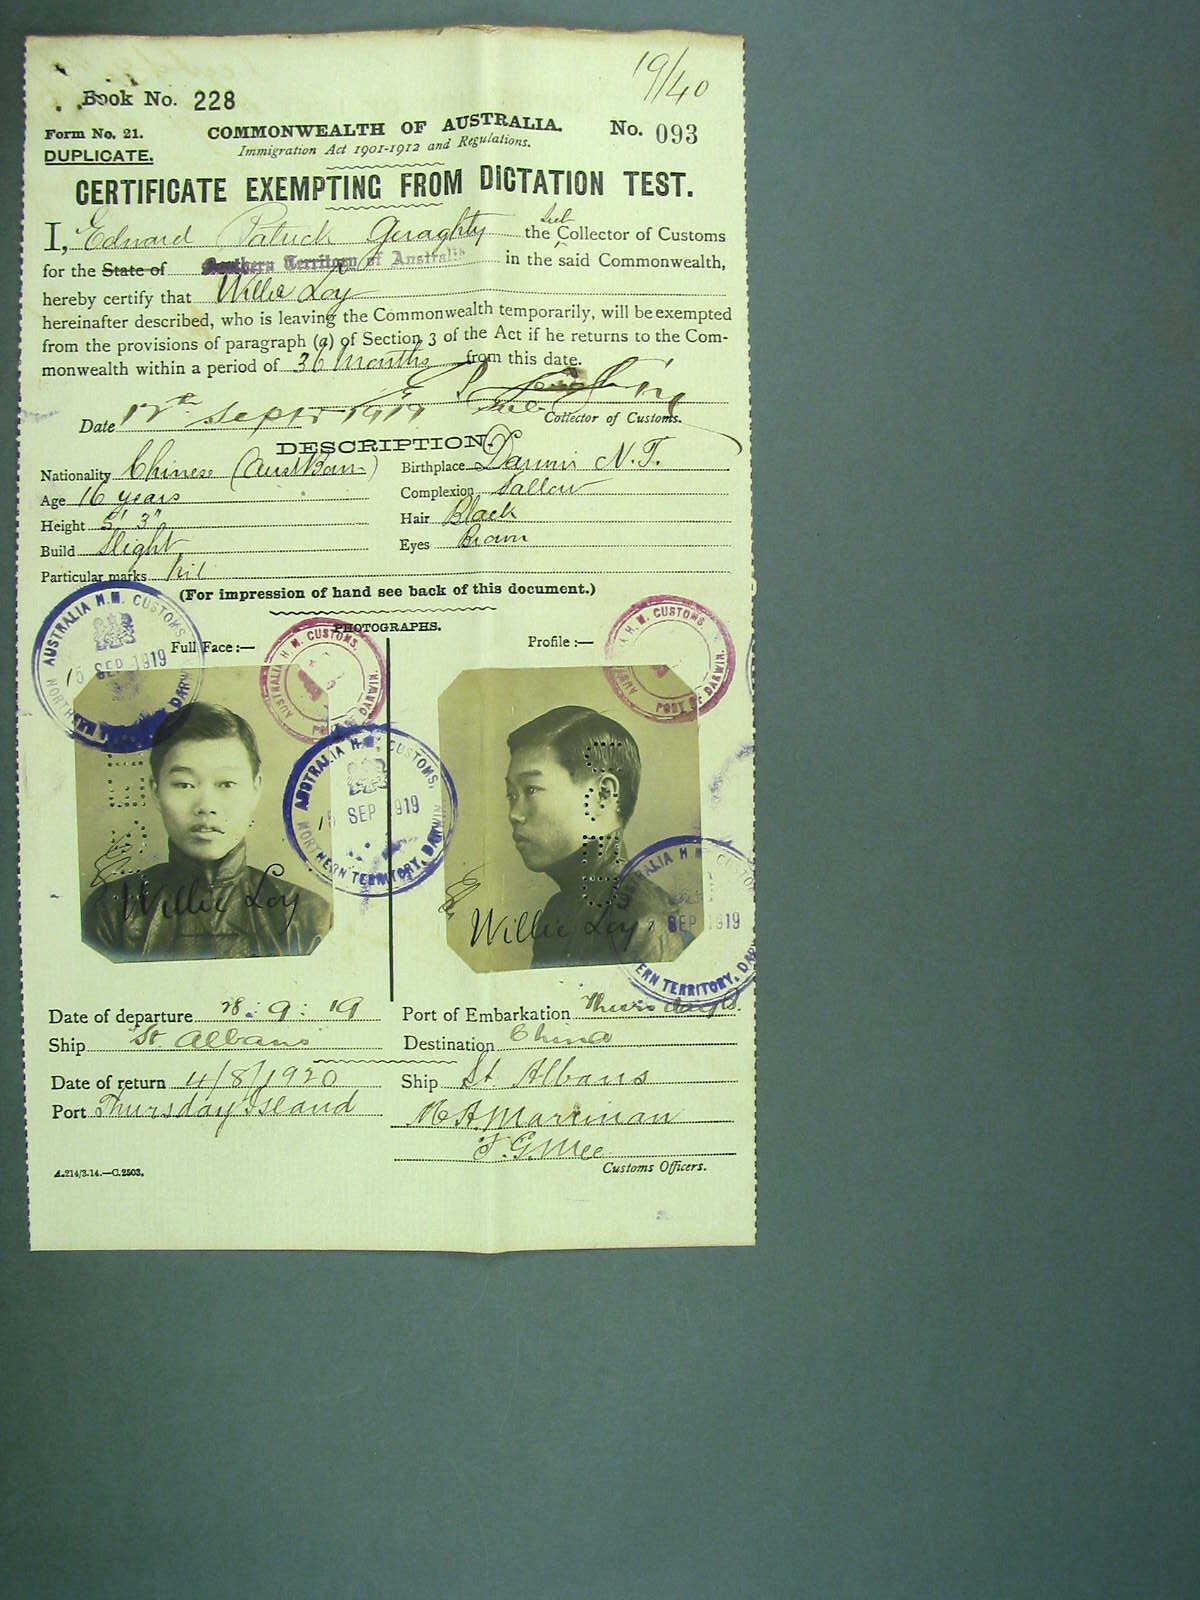 19/40
Book No. 228
Form No. 21. COMMONWEALTH OF AUSTRALIA. No. 093
DUPLICATE. Immigration Act 1901-1912 and Regulations.
CERTIFICATE EXEMPTING FROM DICTATION TEST.
I, Edward Patrick Geraghty the Sub Collector of Customs
for the State of Northern Territory of Australia in the said Commonwealth,
hereby certify that Willie Loy
hereinafter described, who is leaving the Commonwealth temporarily, will be exempted
from the provisions of paragraph (a) of Section 3 of the Act if he returns to the Com-
monwealth within a period of 36 Months from this date.
Date 12th Sept 1919 Sub Collector of Customs.
DESCRIPTION.
Nationality Chinese (Aust Born) Birthplace Darwin N.T.
Age 16 years Complexion Sallow
Height 5' 3" Hair Black
Build Slight Eyes Brown
Particular marks Nil
(For impression of hand see back of this document.)
PHOTOGRAPHS.
Full Face:— Profile:—
AUSTRALIA H.M. CUSTOMS 15 SEP 1919 NORTHERN TERRITORY, DARWIN
AUSTRALIA H.M. CUSTOMS. PORT OF DARWIN.
AUSTRALIA H.M. CUSTOMS. PORT OF DARWIN.
AUSTRALIA H.M. CUSTOMS, 15 SEP 1919 NORTHERN TERRITORY, DARWIN
AUSTRALIA H.M. CUSTOMS SEP 1919 NORTHERN TERRITORY, DARWIN
Willie Loy Willie Loy
Date of departure 28 : 9 : 19 Port of Embarkation Thursday Is.
Ship St. Albans Destination China
Date of return 4/8/1920 Ship St. Albans
Port Thursday Island
Customs Officers.
A.214/3.14.—C.2503.